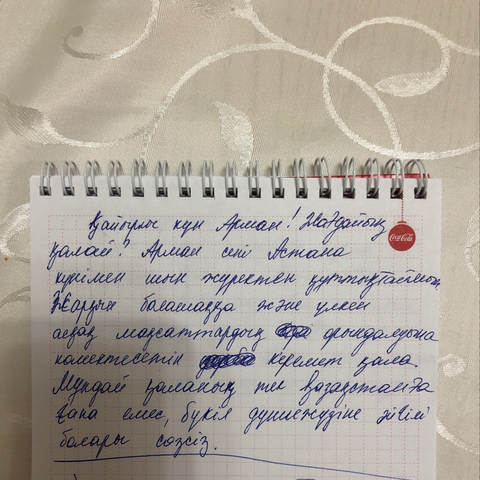 Қайырлы күн Арман! Жағдайың
қалай? Арман сені Астана
күнімен шын жүректен құттықтаймын
Жарқын болашаққа және үлкен
асқақ мақсаттардың орындалуына
көмектесетін керемет қала.
Мұндай қаланың тек Қазақстанда
ғана емес, бүкіл дүниежүзіне әйгілі
болары сөзсіз.
Coca-Cola